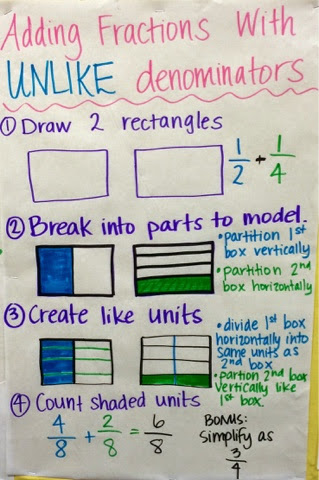 Adding Fractions With
UNLIKE denominators
① Draw 2 rectangles
1/2 + 1/4
② Break into parts to model.
• partition 1st
box vertically
• partition 2nd
box horizontally
③ Create like units
• divide 1st box
horizontally into
same units as
2nd box
• partion 2nd box
vertically like
1st box.
④ Count shaded units
4/8 + 2/8 = 6/8
BONUS:
Simplify as
3/4